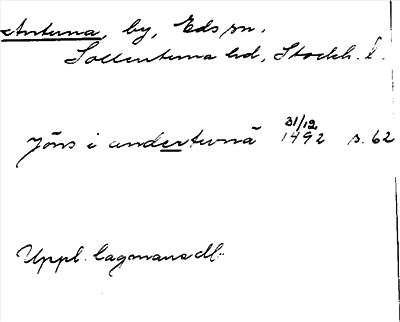 Antuna, by, Eds sn.
Sollentuna hd, Stockh. l.
Jöns i andertwnä 31/12 1492 s. 62
Uppl. lagmansdb.